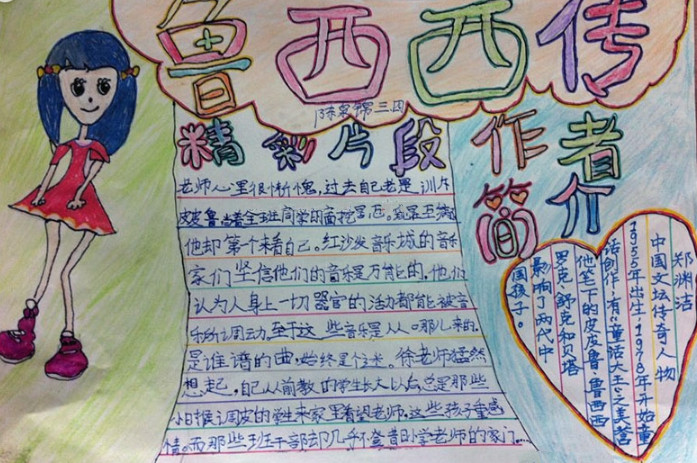 鲁西西传
第三
精彩片段
作者
简介
老师心里很惭愧,过去自己老是训斥
皮皮鲁当着全班同学的面挖
他却第一个来看自己。红沙发音乐城的音乐
家们坚信他们的音乐是万能的,他们
认为人身上一切器官的活动都能被音
乐协调动,至于这些音乐是从哪儿来的
是谁谱的曲,始终是个迷。徐老师猛然
想起,自己从前教的学生长大以后,总是那些
小时候调皮的学生来家里看望老师,这些孩子重感
情。而那些班干部却几乎不登昔日小学老师的家门....
郑渊洁
中国文坛传奇人物
1955年出生,1978年开始童
话创作,有童话大王之美誉
他笔下的皮皮鲁·鲁西西
罗克·舒克和贝塔
影响了两代中
国孩子。